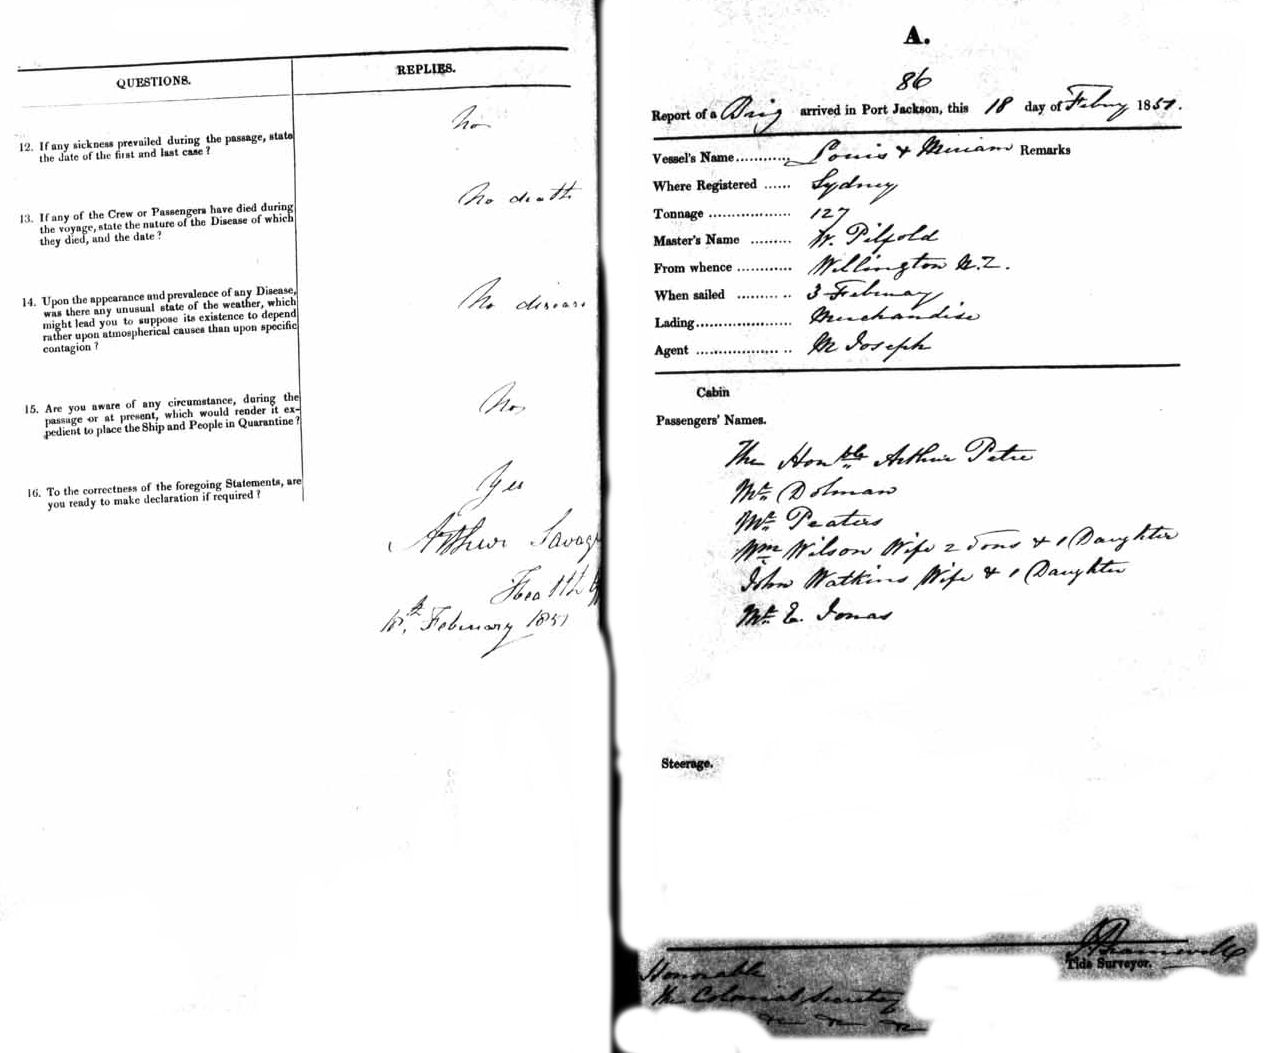 QUESTIONS.
REPLIES.
12. If any sickness prevailed during the passage, state
the date of the first and last case ?
No
13. If any of the Crew or Passengers have died during
the voyage, state the nature of the Disease of which
they died, and the date ?
No death
14. Upon the appearance and prevalence of any Disease,
was there any unusual state of the weather, which
might lead you to suppose its existence to depend
rather upon atmospherical causes than upon specific
contagion ?
No disease
15. Are you aware of any circumstance, during the
passage or at present, which would render it ex-
pedient to place the Ship and People in Quarantine ?
No
16. To the correctness of the foregoing Statements, are
you ready to make declaration if required ?
Yes
Arthur Savag
Health
18th. February 1851
A.
86
Report of a Brig arrived in Port Jackson, this 18 day of Febry 1851.
Vessel's Name............ Louis & Miriam Remarks
Where Registered ...... Sydney
Tonnage .................. 127
Master's Name ......... W. Pilfold
From whence ............ Wellington N.Z.
When sailed ............ 3 February
Lading..................... Merchandise
Agent ..................... M Joseph
Cabin
Passengers' Names.
The Honble Arthur Petre
Mr Dolman
Mr Peaters
Wm Wilson Wife 2 Sons & 1 Daughter
John Watkins Wife & 1 Daughter
Mr E. Jonas
Steerage.
Tide Surveyor.
Honorable
The Colonial Secretary